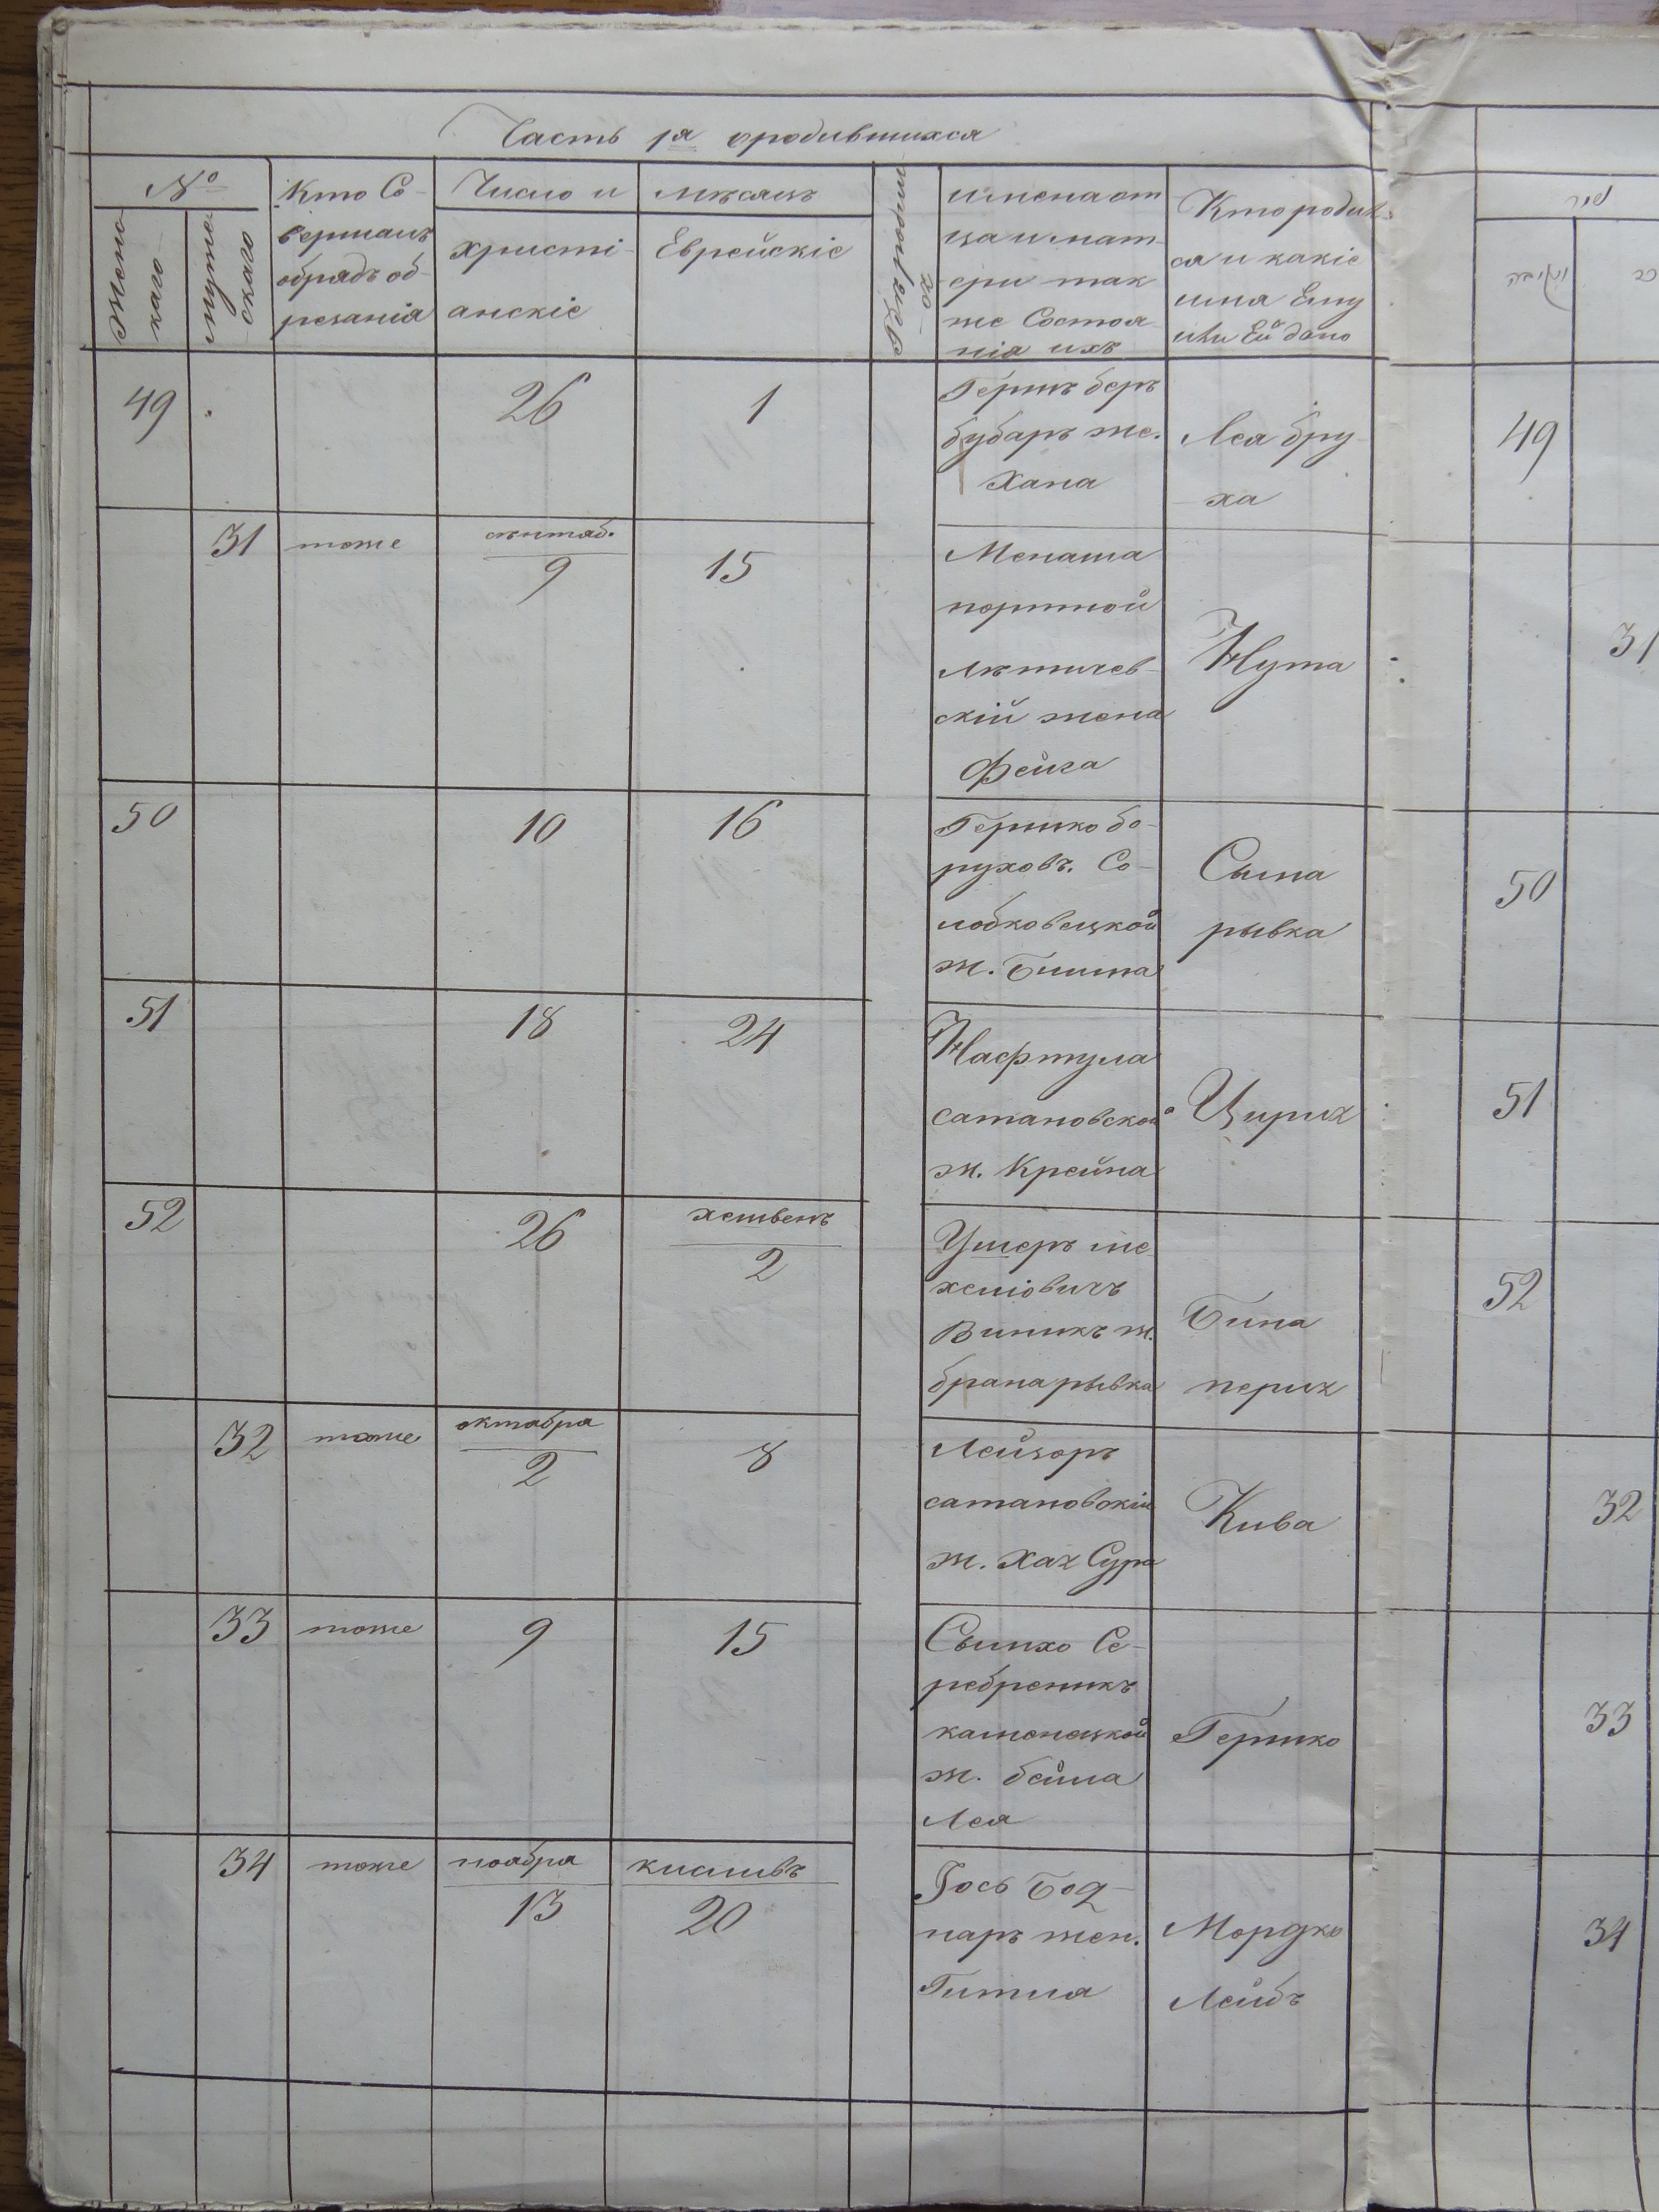 Часть 1я о родившихся
№
Женс
каго
мужес
скаго
Кто Со-
вершалъ
обрядъ об-
резанія
Число и мѣсяцъ
христі-
анскіе
Еврейскіе
имена от
ца и мат-
ери так
же Состоя
нія ихъ
Кто родил
ся и какіе
имя Ему
или Ей дано
49
26
1
Гершъ беръ
бубаръ же.
Хана
Леа бру
ха
31
тоже
сѣнтяб.
9
15
Менаша
портной
Лѣтичев-
скій жена
Фейга
Нута
50
10
16
Гершко бо-
руховъ. Со-
лобковецкой
ж. Бишма
Сыма
рывка
51
18
24
Нафтула
сатановской
ж. Крейна
Цирих
52
26
хешвенъ
2
Ушеръ ме
хелiовичъ
Виникъ ж.
брана рывка
Бина
перих
32
тоже
октабра
2
8
Лейзоръ
сатановскій
ж. Хах Сура
Кива
33
тоже
9
15
Сымхо Се-
ребреникъ
каменецкой
ж. бейла
Леа
Гершко
34
тоже
ноабра
13
кислывъ
20
Іось Бод-
наръ жен.
Гитла
Мордко
Лейбъ
49
31
50
51
52
32
33
34